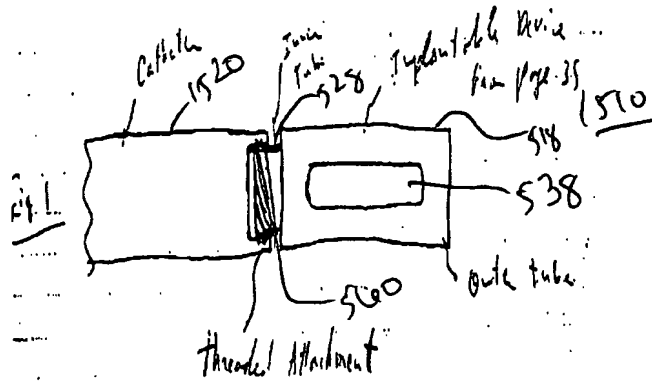 Catheter
1520
Inner
Tube
528
Implantable Device ...
from page 35
1510
518
538
Fig. 1
Outer tube
560
Threaded Attachment